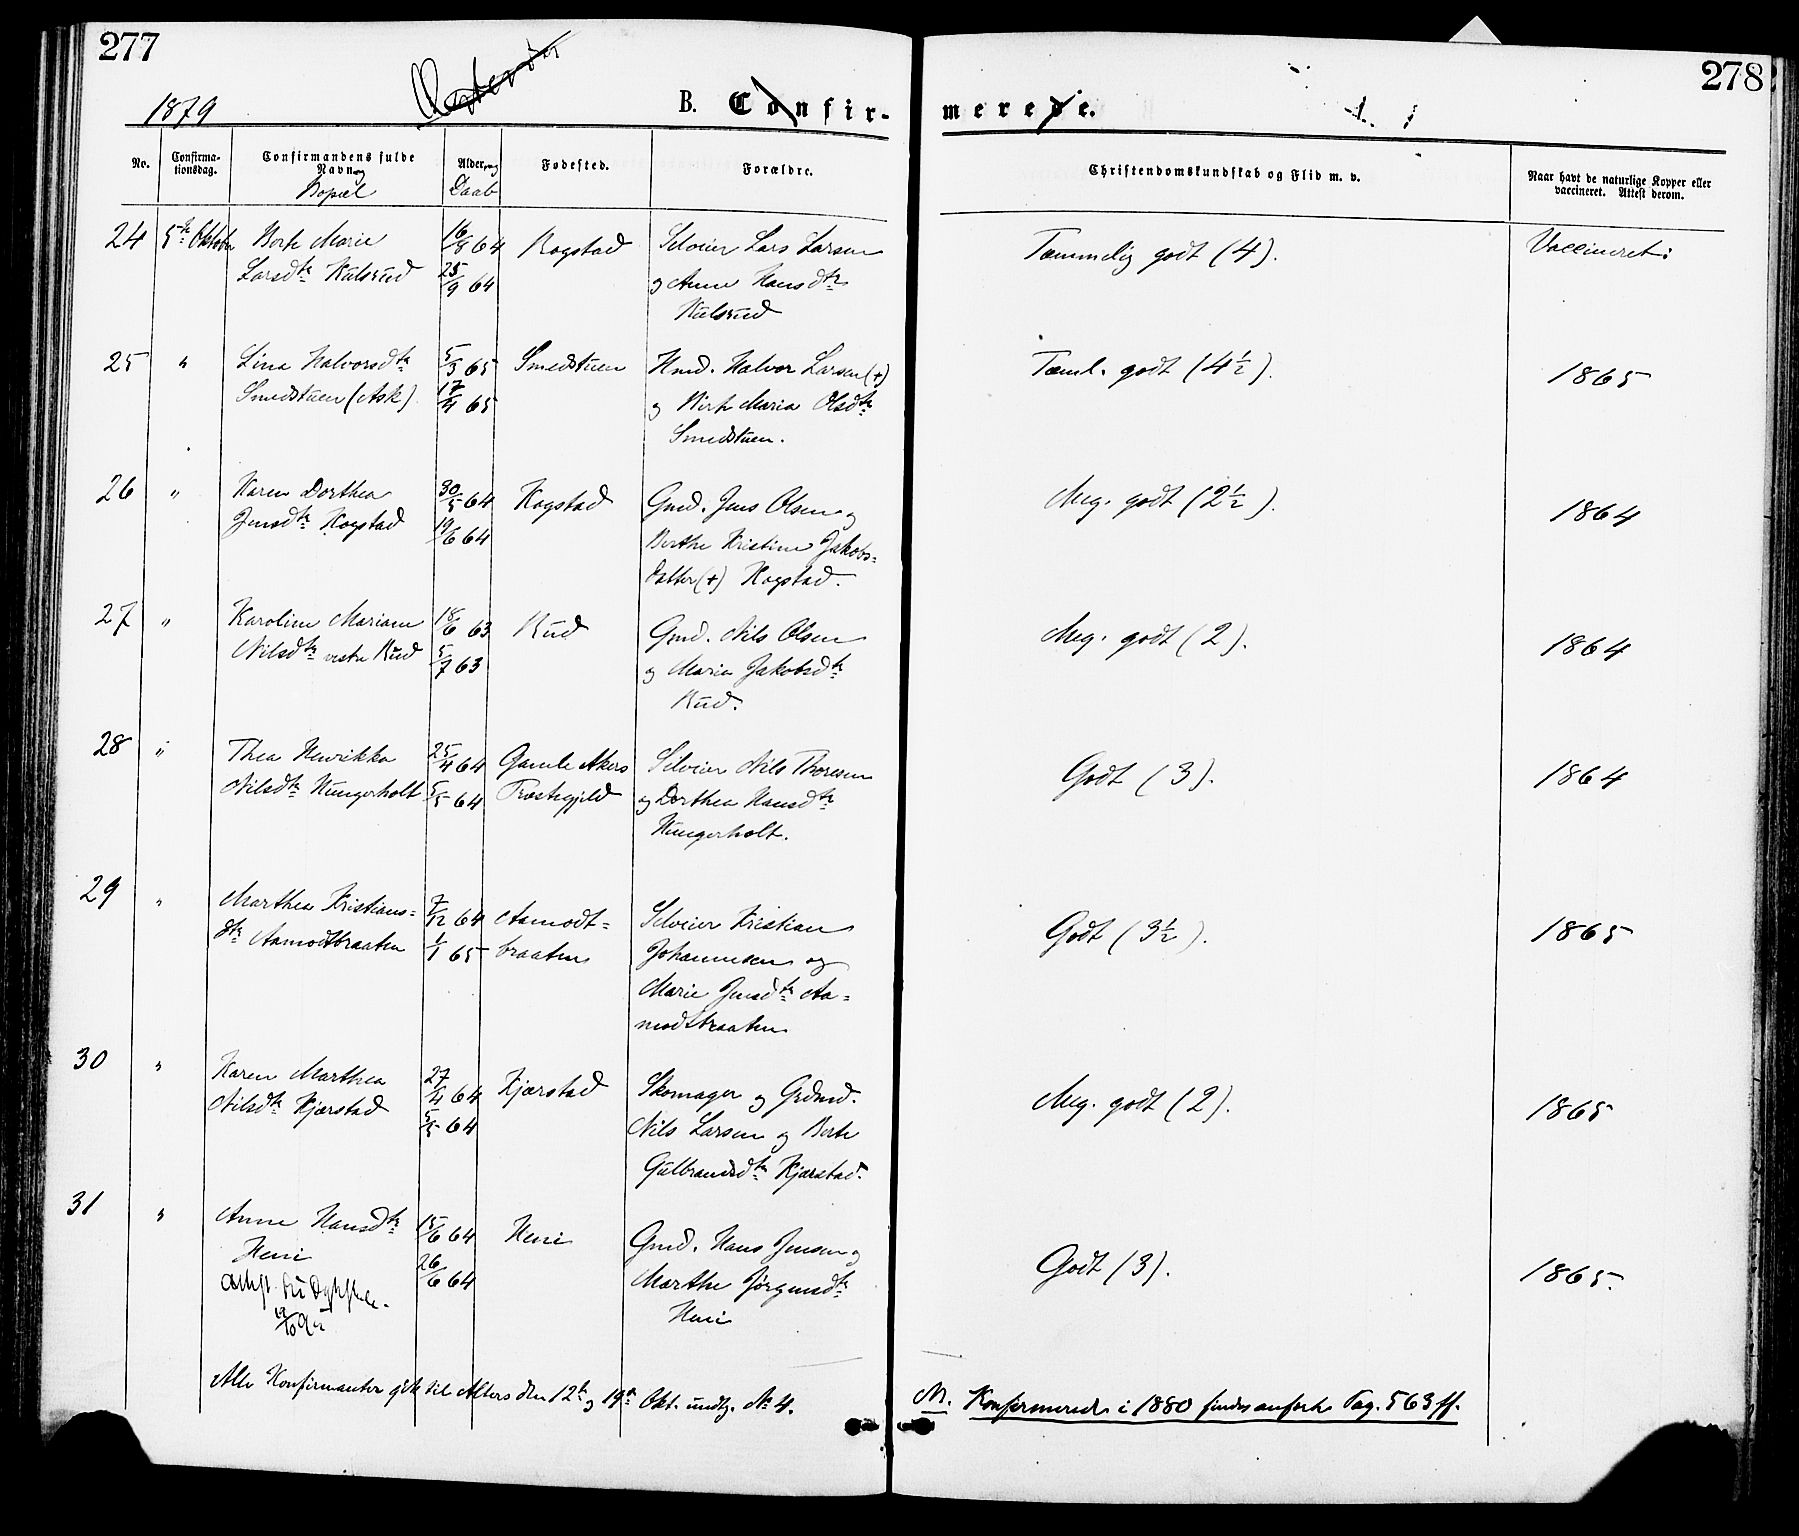 277
278
1879
B. Confir-
merede.
No.
Confirma-
tionsdag.
Confirmandens fulde
Navn og
Bopæl
Alder og
Daab
Fødested.
Forældre.
Christendomskundskab og Flid m. v.
Naar havt de naturlige Kopper eller
vaccineret. Attest derom.
24 5te Oktober Berte Marie 16/8 64 Rogstad Selveier Lars Larsen Temmelig godt (4). Vaccineret:
Larsdtr Kulsrud 25/9 64 og Anne Hansdtr
Kulsrud
25 " Lina Halvorsdtr 5/3 65 Smedstuen Hmd. Halvor Larsen (+) Teml. godt (4½). 1865
Smedstuen (Ask) 17/4 65 og Berte Maria Olsdtr
Smedstuen.
26 " Karen Dorthea 30/5 64 Kogstad Gmd. Jens Olsen og Meg. godt (2½). 1864
Jensdtr Kogstad 19/6 64 Berthe Kristine Jakobs=
datter (+) Kogstad.
27 " Karoline Mariane 18/6 63 Rud Gmd. Nils Olsen Meg. godt (2). 1864
Nilsdtr vestre Rud 5/7 63 og Maria Jakobsdtr
Rud.
28 " Thea Henrikka 25/4 64 Gamle Akers Selveier Nils Thoresen Godt (3). 1864
Nilsdtr Hungerholt 5/5 64 Præstegjeld og Dorthea Hansdtr
Hungerholt.
29 " Marthea Kristians= 7/12 64 Aamodt= Selveier Kristian Godt (3½). 1865
dtr Aamodtbraaten 1/1 65 braaten Johannesen og
Marie Jensdtr Aa=
modtbraaten
30 " Karen Marthea 27/4 64 Kjærstad Skomager og Grdmd. Meg. godt (2). 1865
Nilsdtr Kjærstad 5/5 64 Nils Larsen og Berte
Gulbrandsdtr Kjærstad.
31 " Anne Hansdtr 15/6 64 Heni Gmd. Hans Jensen og Godt (3). 1865
Heni 26/6 64 Marthe Jørgensdtr
Heni
Alle Konfirmanter gik til Alters den 12te og 19de Okt. undtg. No 4.
NB. Konfirmerede i 1880 findes anførte Pag. 563 ff.